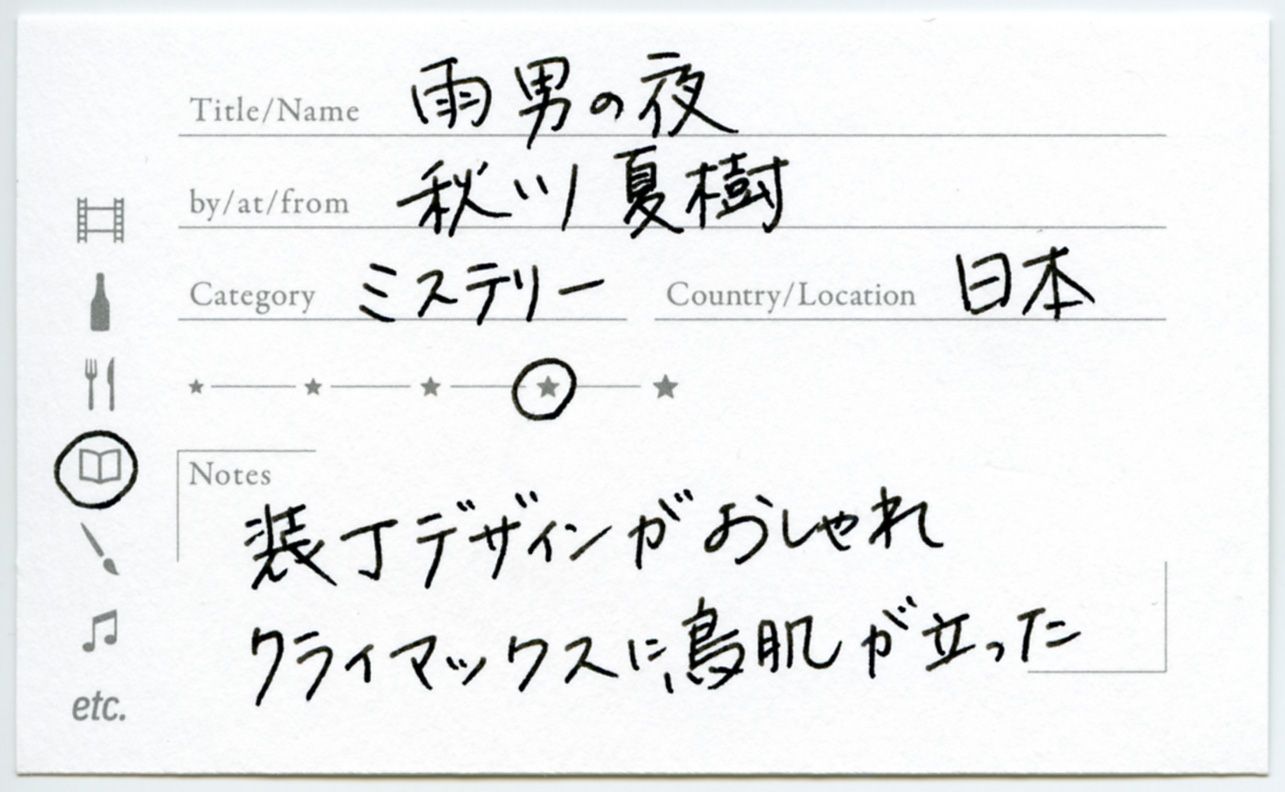 Title/Name 雨男の夜
by/at/from 秋川 夏樹
Category ミステリー Country/Location 日本
Notes
装丁デザインがおしゃれ
クライマックスに鳥肌が立った
etc.